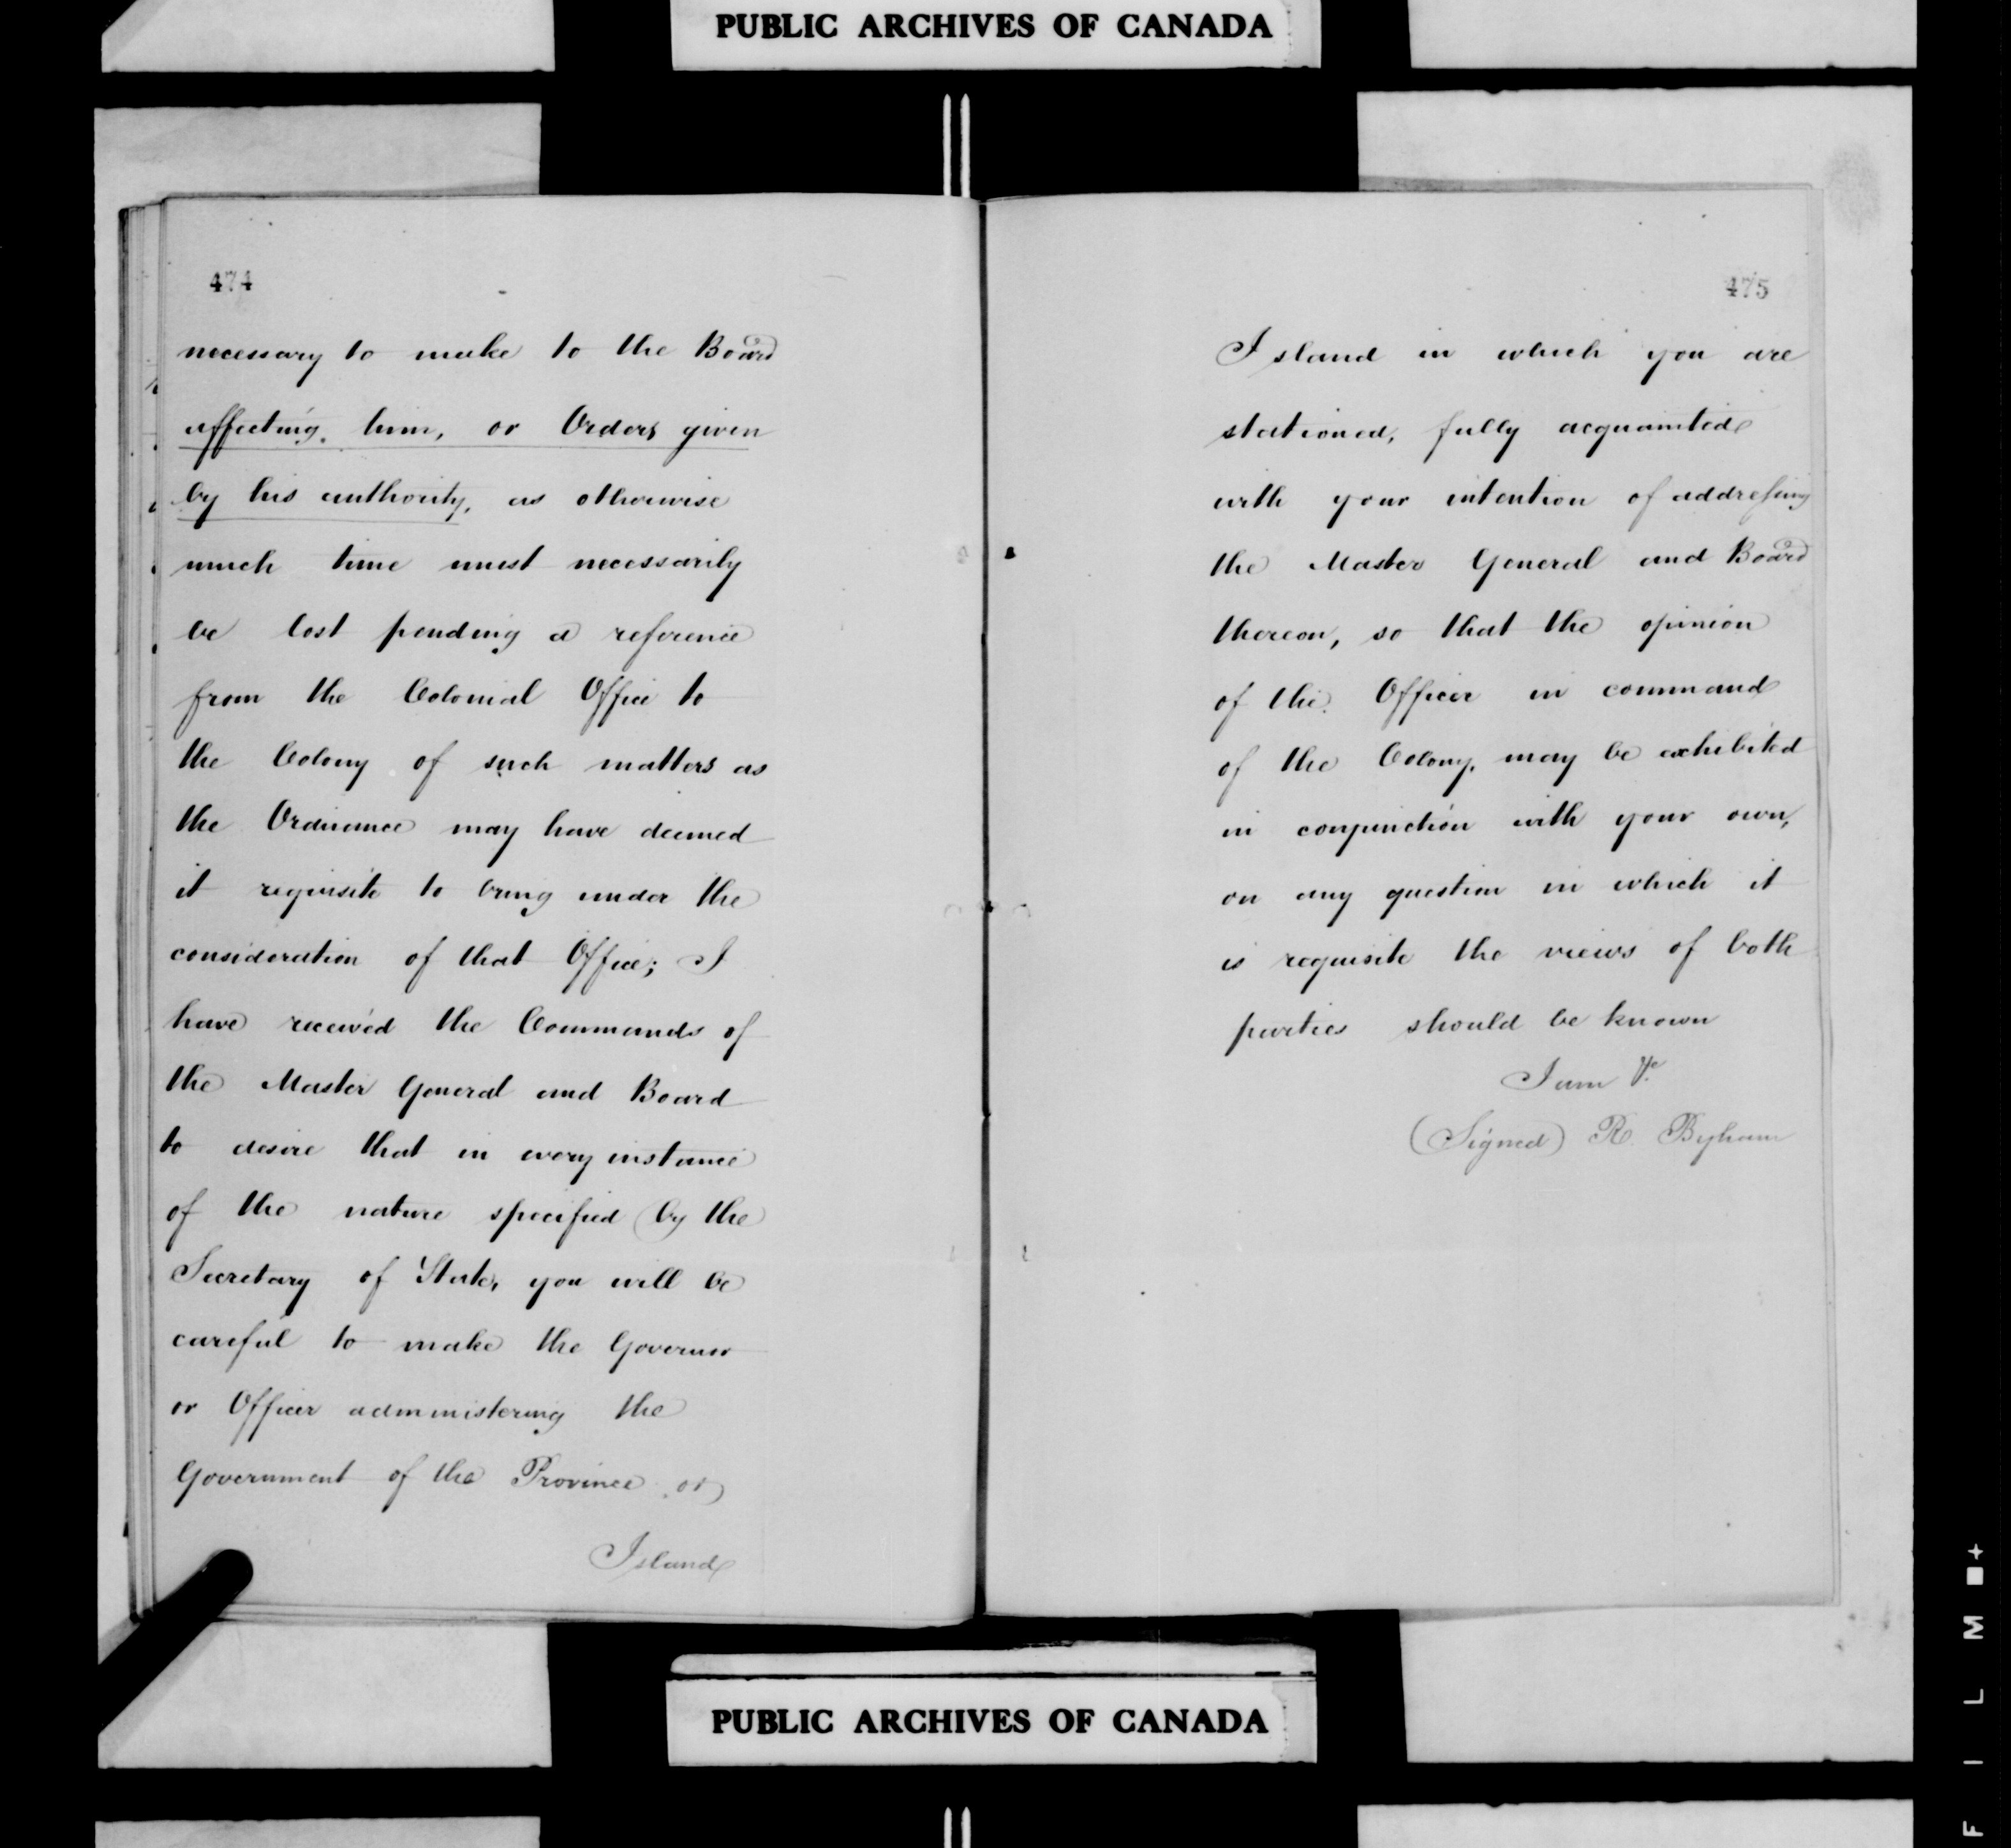 PUBLIC ARCHIVES OF CANADA
474
necessary to make to the Board
affecting him, or Orders given
by his authority, as otherwise
much time must necessarily
be lost pending a reference
from the Colonial Office to
the Colony of such matters as
the Ordnance may have deemed
it requisite to bring under the
consideration of that Office; I
have received the Commands of
the Master General and Board
to desire that in every instance
of the nature specified by the
Secretary of State, you will be
careful to make the Governor
or Officer administering the
Government of the Province or
Island
475
Island in which you are
stationed, fully acquainted
with your intention of addressing
the Master General and Board
thereon, so that the opinion
of the Officer in command
of the Colony, may be exhibited
in conjunction with your own,
on any question in which it
is requisite the views of both
parties should be known
I am &c.
(Signed) R. Byham
PUBLIC ARCHIVES OF CANADA
FILM